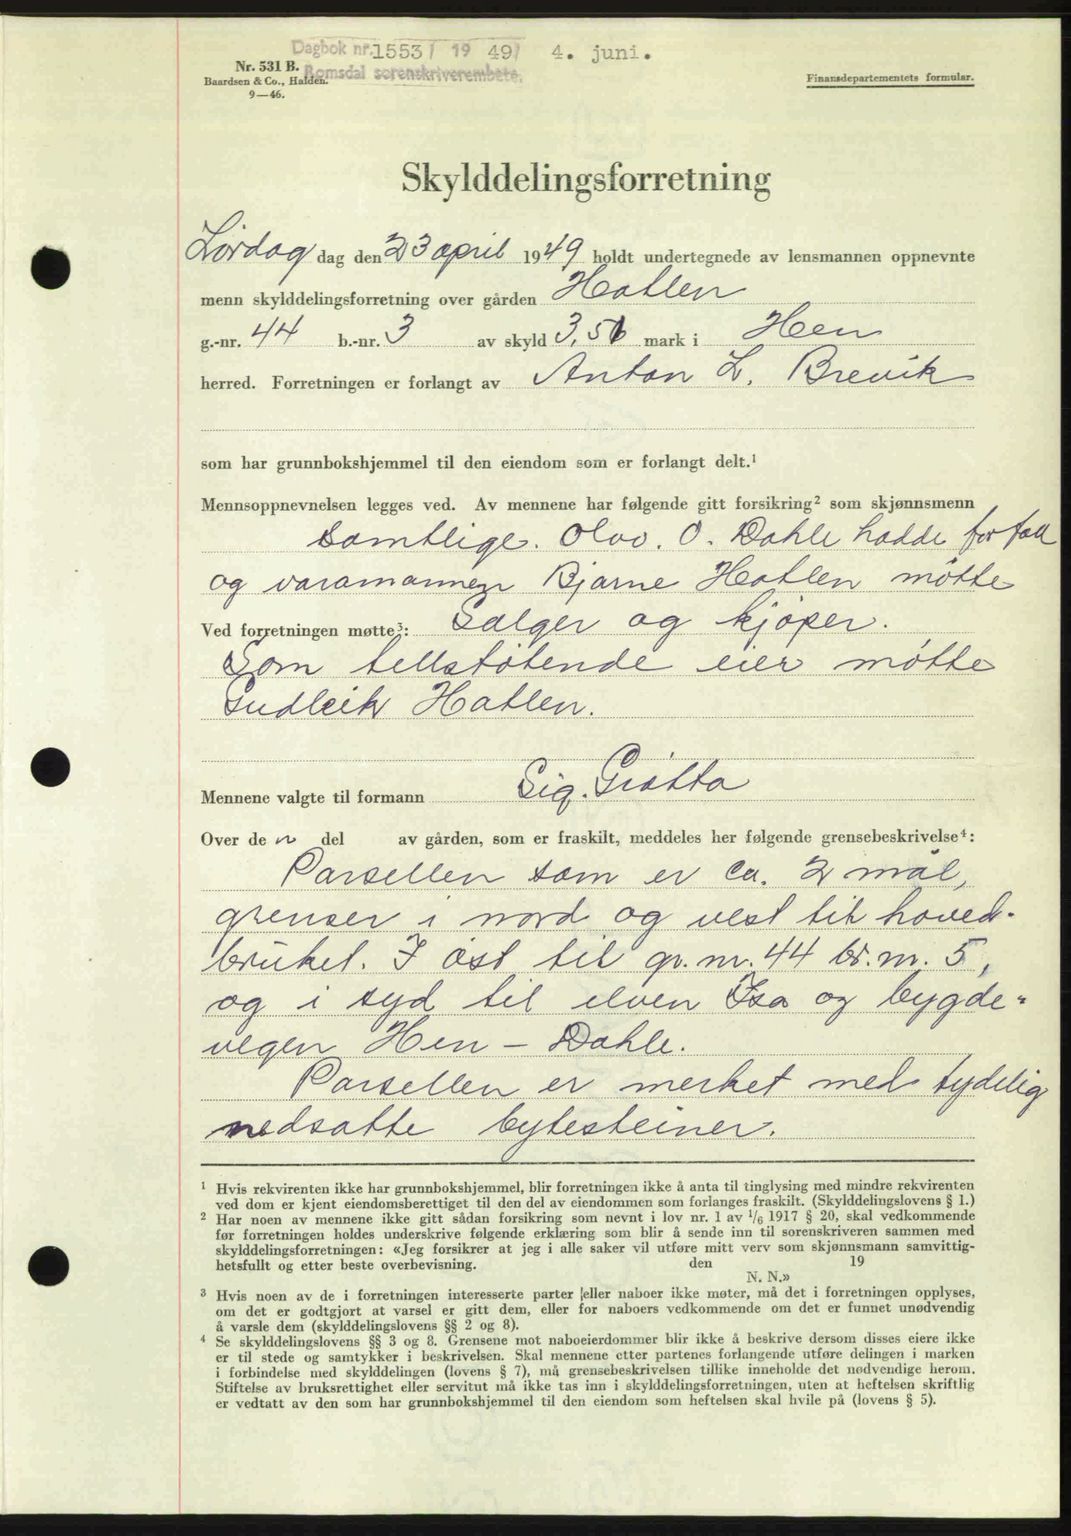 Dagbok nr. 1553/ 19 49/ 4. juni.
Romsdal sorenskriverembete.
Nr. 531 B.
Baardsen & Co., Halden.
9—46.
Finansdepartementets formular.
Skylddelingsforretning
Lørdag dag den 23 april 1949 holdt undertegnede av lensmannen oppnevnte
menn skylddelingsforretning over gården Hatlen
g.-nr. 44 b.-nr. 3 av skyld 3,51 mark i Hen
herred. Forretningen er forlangt av Anton L. Brevik
som har grunnbokshjemmel til den eiendom som er forlangt delt.¹
Mennsoppnevnelsen legges ved. Av mennene har følgende gitt forsikring² som skjønnsmenn
Samtlige. Olav. O. Dahle hadde forfall
og varamannen Bjarne Hatlen møtte
Ved forretningen møtte³: Selger og kjøper.
Som tillstøtende eier møtte
Gudleik Hatlen.
Mennene valgte til formann Sig. Grøtta
Over de n del av gården, som er fraskilt, meddeles her følgende grensebeskrivelse⁴:
Parsellen som er ca. 2 mål,
grenser i nord og vest til hoved-
bruket. I øst til gr. nr. 44 br. nr. 5,
og i syd til elven Isa og bygde-
vegen Hen – Dahle.
Parsellen er merket med tydelig
nedsatte bytesteiner.
¹ Hvis rekvirenten ikke har grunnbokshjemmel, blir forretningen ikke å anta til tinglysing med mindre rekvirenten
ved dom er kjent eiendomsberettiget til den del av eiendommen som forlanges fraskilt. (Skylddelingslovens § 1.)
² Har noen av mennene ikke gitt sådan forsikring som nevnt i lov nr. 1 av 1/6 1917 § 20, skal vedkommende
før forretningen holdes underskrive følgende erklæring som blir å sende inn til sorenskriveren sammen med
skylddelingsforretningen: «Jeg forsikrer at jeg i alle saker vil utføre mitt verv som skjønnsmann samvittig-
hetsfullt og etter beste overbevisning. den 19
N. N.»
³ Hvis noen av de i forretningen interesserte parter eller naboer ikke møter, må det i forretningen opplyses,
om det er godtgjort at varsel er gitt dem, eller for naboers vedkommende om det er funnet unødvendig
å varsle dem (skylddelingslovens §§ 2 og 8).
⁴ Se skylddelingslovens §§ 3 og 8. Grensene mot naboeierdommer blir ikke å beskrive dersom disses eiere ikke
er til stede og samtykker i beskrivelsen. Skal mennene etter partenes forlangende utføre delingen i marken
i forbindelse med skylddelingen (lovens § 7), må grensebeskrivelsen tillike inneholde det nødvendige herom.
Stiftelse av bruksrettighet eller servitut må ikke tas inn i skylddelingsforretningen, uten at heftelsen skriftlig
er vedtatt av den som har grunnbokshjemmel til den eiendom som heftelsen skal hvile på (lovens § 5).